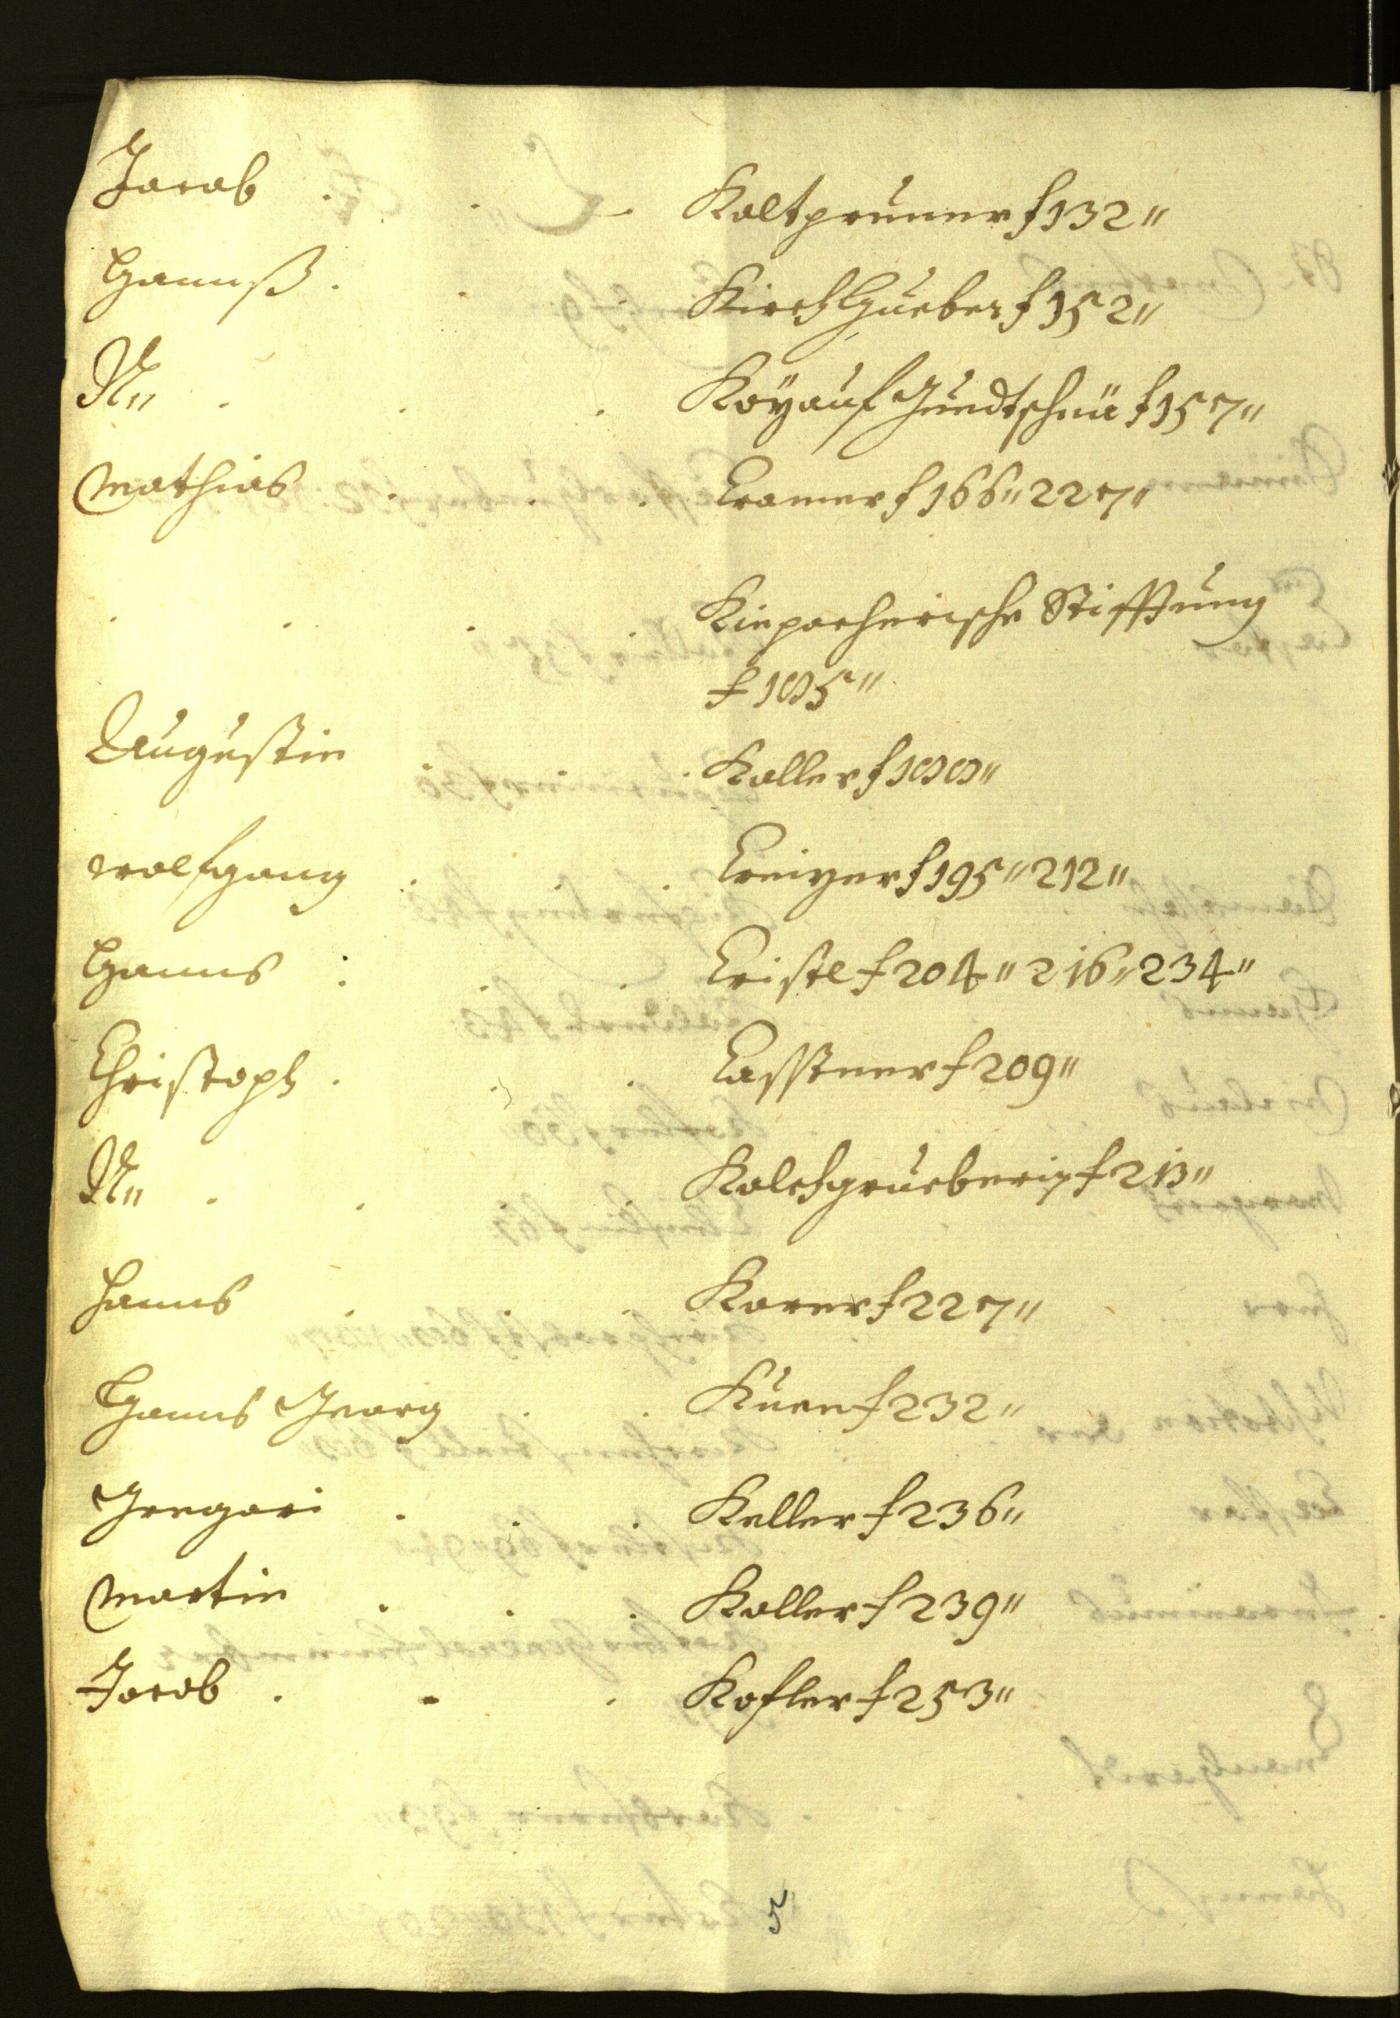 Jacob . . . Kaltprunner f 132 ״
Hannß . . . KirchHueber f 152 ״
N״ . . . Köÿ auf Guedtschnä f 157 ״
Mathias . . . Cramer f 166 ״ 227 ״
. . . . Kiepacherische Stifftung
f 185 ״
Augustin . . . Koller f 188 ״
Wolfgang . . . Creizer f 195 ״ 212 ״
Hanns : . . Cristl f 204 ״ 216 ״ 234 ״
Christoph . . . Casstner f 209 ״
N״ . . . Kalchgrueberin f 213 ״
Hanns . . . Karer f 227 ״
Hanns Georg . . Kuen f 232 ״
Gregori . . . Keller f 236 ״
Martin . . . Koller f 239 ״
Jacob . . . Kofler f 253 ״
5